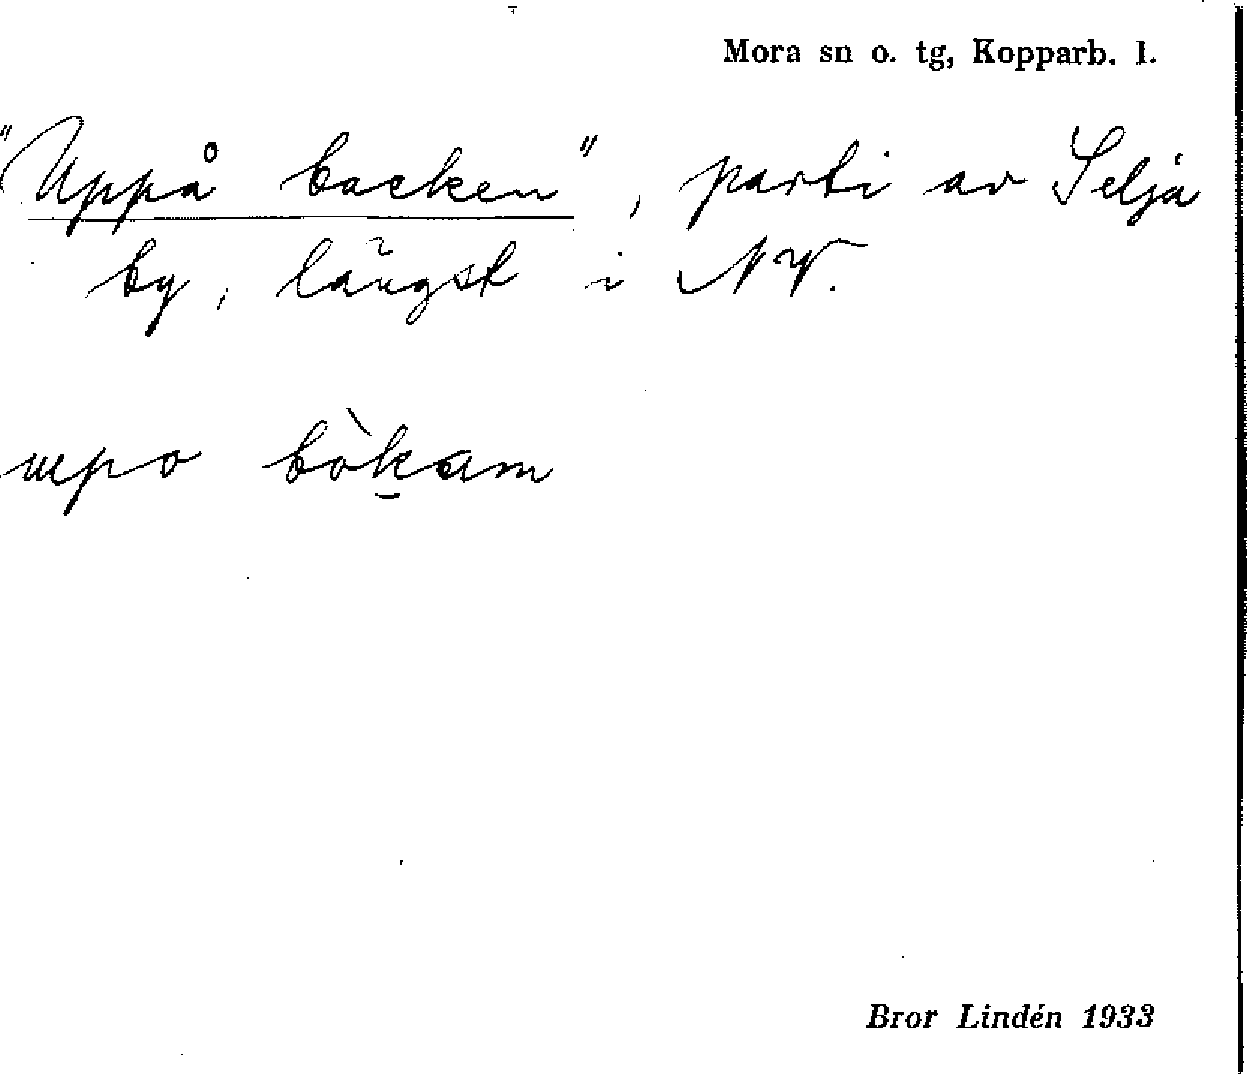 Mora sn o. tg, Kopparb. l.
"Uppå backen", parti av Selja
by, längst i NV.
upo bòk̠am
Bror Lindén 1933